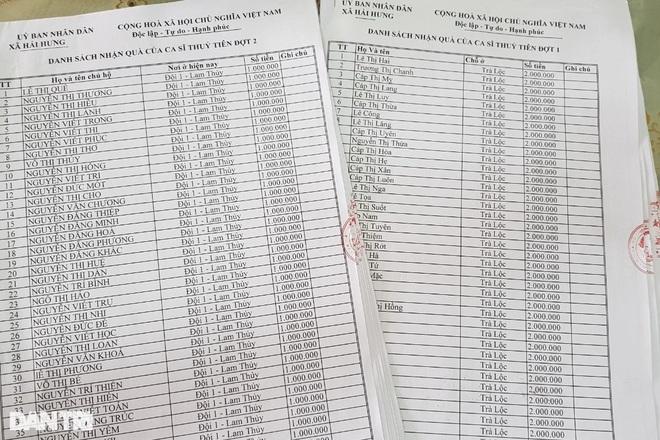 UỶ BAN NHÂN DÂN
XÃ HẢI HƯNG
CỘNG HOÀ XÃ HỘI CHỦ NGHĨA VIỆT NAM
Độc lập - Tự do - Hạnh phúc
DANH SÁCH NHẬN QUÀ CỦA CA SĨ THUỶ TIÊN ĐỢT 2
TT Họ và tên chủ hộ Nơi ở hiện nay Số tiền Ghi chú
1 LÊ THỊ QUẾ Đội 1 - Lam Thủy 1.000.000
2 NGUYỄN THỊ THƯƠNG Đội 1 - Lam Thủy 1.000.000
3 NGUYỄN THỊ HIẾU Đội 1 - Lam Thủy 1.000.000
4 NGUYỄN THỊ LÀNH Đội 1 - Lam Thủy 1.000.000
5 NGUYỄN VIẾT TRONG Đội 1 - Lam Thủy 1.000.000
6 NGUYỄN VIẾT THI Đội 1 - Lam Thủy 1.000.000
7 NGUYỄN VIẾT PHÚC Đội 1 - Lam Thủy 1.000.000
8 NGUYỄN THỊ THO Đội 1 - Lam Thủy 1.000.000
9 VÕ THỊ THUỶ Đội 1 - Lam Thủy 1.000.000
10 NGUYỄN THỊ HỒNG Đội 1 - Lam Thủy 1.000.000
11 NGUYỄN VIẾT TRÍ Đội 1 - Lam Thủy 1.000.000
12 NGUYỄN ĐỨC MỘT Đội 1 - Lam Thủy 1.000.000
13 NGUYỄN THỊ CHO Đội 1 - Lam Thủy 1.000.000
14 NGUYỄN VĂN CHƯƠNG Đội 1 - Lam Thủy 1.000.000
15 NGUYỄN ĐĂNG THIỆP Đội 1 - Lam Thủy 1.000.000
16 NGUYỄN ĐĂNG MINH Đội 1 - Lam Thủy 1.000.000
17 NGUYỄN ĐĂNG HO Đội 1 - Lam Thủy 1.000.000
18 NGUYỄN ĐĂNG PHƯƠNG Đội 1 - Lam Thủy 1.000.000
19 NGUYỄN ĐĂNG KHÁC Đội 1 - Lam Thủy 1.000.000
20 NGUYỄN THỊ HUỆ Đội 1 - Lam Thủy 1.000.000
21 NGUYỄN THỊ DÂN Đội 1 - Lam Thủy 1.000.000
22 NGUYỄN TRÍ BÌNH Đội 1 - Lam Thủy 1.000.000
23 NGÔ THỊ HẢO Đội 1 - Lam Thủy 1.000.000
24 NGUYỄN VIẾT TRỤ Đội 1 - Lam Thủy 1.000.000
25 NGUYỄN THỊ NHI Đội 1 - Lam Thủy 1.000.000
26 NGUYỄN ĐỨC ĐỀ Đội 1 - Lam Thủy 1.000.000
27 NGUYỄN VIẾT HỌC Đội 1 - Lam Thủy 1.000.000
28 NGUYỄN THỊ LOAN Đội 1 - Lam Thủy 1.000.000
29 NGUYỄN VĂN KHOA Đội 1 - Lam Thủy 1.000.000
30 LÊ THỊ PHƯƠNG Đội 1 - Lam Thủy 1.000.000
31 VÕ THỊ BÉ Đội 1 - Lam Thủy 1.000.000
NGUYỄN TRÍ THIỆN Đội 1 - Lam Thủy 1.000.000
NGUYỄN THỊ HIỀN Đội 1 - Lam Thủy 1.000.000
VIẾT TOÀN Đội 1 - Lam Thủy 1.000.000
TRÚC Đội 1 - Lam Thủy 1.000.000
THỊ YẾM Đội 1 - Lam Thủy 1.000.000
ỦY BAN NHÂN DÂN
XÃ HẢI HƯNG
CỘNG HOÀ XÃ HỘI CHỦ NGHĨA VIỆT NAM
Độc lập - Tự do - Hạnh phúc
DANH SÁCH NHẬN QUÀ CỦA CA SĨ THUỶ TIÊN ĐỢT 1
TT Họ Và Tên Chỗ ở Số tiền Ghi chú
1 Lê Thị Hai Trà Lộc 2.000.000
2 Trương Thị Chanh Trà Lộc 2.000.000
3 Cáp Thị My Trà Lộc 2.000.000
4 Cáp Thị Lang Trà Lộc 2.000.000
5 Lê Thị Luy Trà Lộc 2.000.000
6 Cáp Thị Thừa Trà Lộc 2.000.000
7 Lê Công Trà Lộc 2.000.000
8 Lê Thị Lãng Trà Lộc 2.000.000
Cáp Thị Uyên Trà Lộc 2.000.000
Nguyễn Thị Thừa Trà Lộc 2.000.000
Cáp Thị Hòa Trà Lộc 2.000.000
Cáp Thị Hẹ Trà Lộc 2.000.000
Cáp Thị Xân Trà Lộc 2.000.000
Cáp Thị Luôn Trà Lộc 2.000.000
Lê Thị Nga Trà Lộc 2.000.000
Tọa Trà Lộc 2.000.000
Thị Suốt Trà Lộc 2.000.000
Nam Trà Lộc 2.000.000
Thị Tuyên Trà Lộc 2.000.000
Thiệm Trà Lộc 2.000.000
Thị Rớt Trà Lộc 2.000.000
Hà Trà Lộc 2.000.000
Tứ Trà Lộc 2.000.000
Mặc Trà Lộc 2.000.000
Trà Lộc 2.000.000
Thị Hồng Trà Lộc 2.000.000
Trà Lộc 2.000.000
Trà Lộc 2.000.000
Trà Lộc 2.000.000
Trà Lộc 2.000.000
Trà Lộc 2.000.000
Trà Lộc 2.000.000
Trà Lộc 2.000.000
Trà Lộc 2.000.000
Trà Lộc 2.000.000
DÂN TRÍ